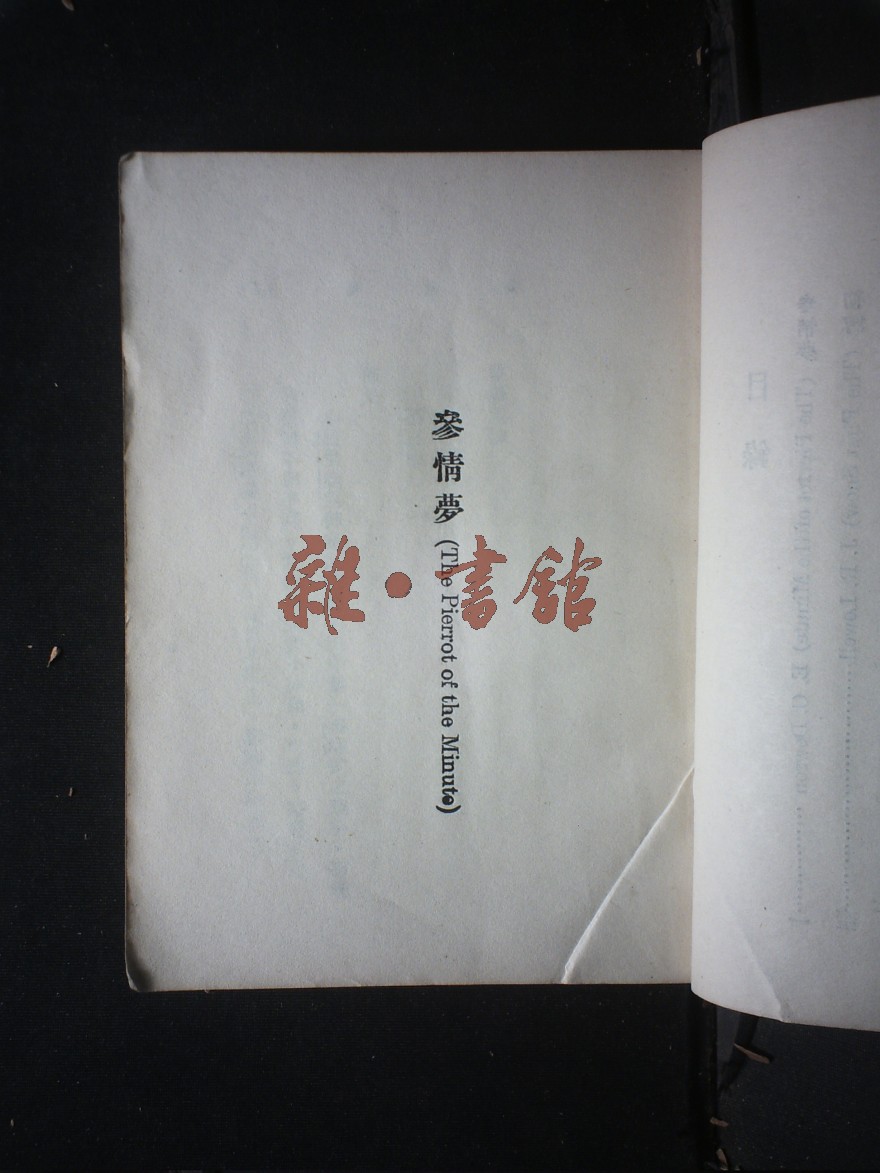 參情夢 (The Pierrot of the Minute)
雜·書館
目錄